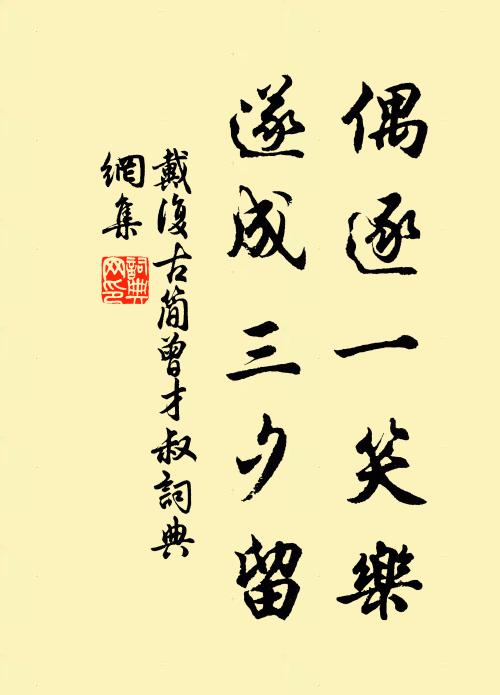 偶逐一笑樂
遂成三夕留
戴復古简曾才叔詞典
網集
詞典
网印